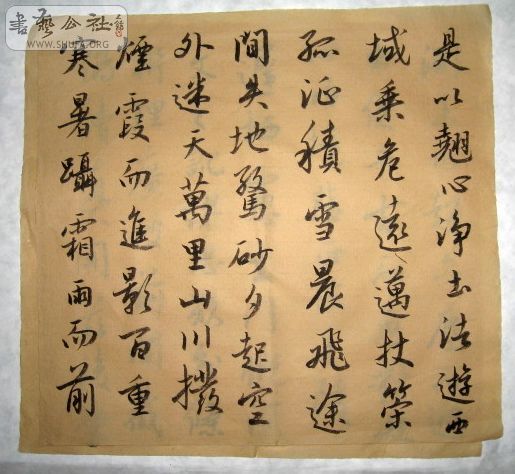 書藝公社
www.SHUFA.ORG
是以翹心淨土法遊西
域乘危遠邁杖策
孤征積雪晨飛途
間失地驚砂夕起空
外迷天萬里山川撥
煙霞而進影百重
寒暑躡霜雨而前